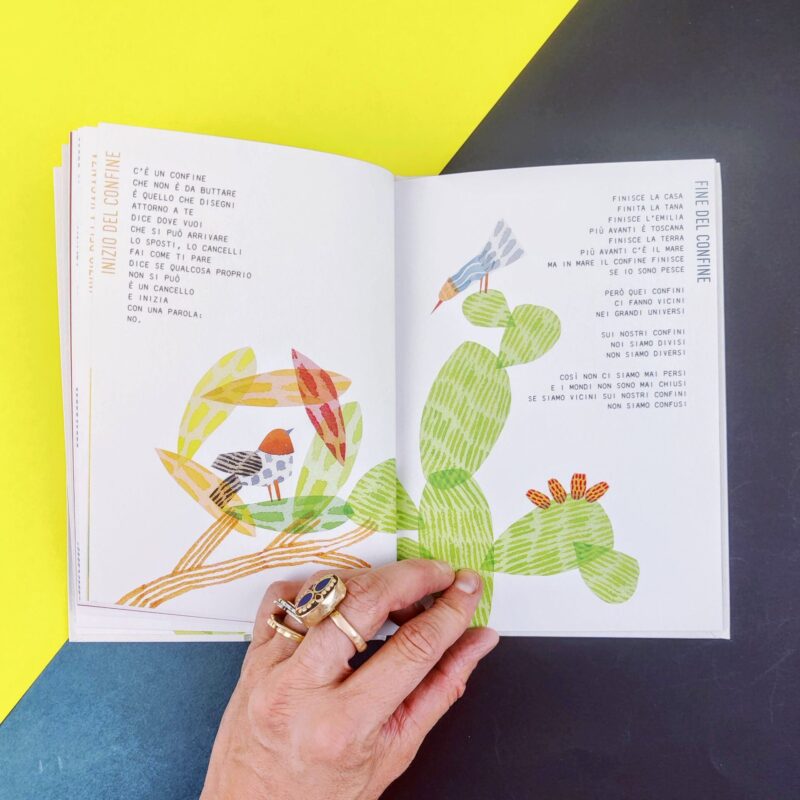 INIZIO DEL CONFINE
C'È UN CONFINE
CHE NON È DA BUTTARE
É QUELLO CHE DISEGNI
ATTORNO A TE
DICE DOVE VUOI
CHE SI PUÒ ARRIVARE
LO SPOSTI, LO CANCELLI
FAI COME TI PARE
DICE SE QUALCOSA PROPRIO
NON SI PUÒ
È UN CANCELLO
E INIZIA
CON UNA PAROLA:
NO.
FINE DEL CONFINE
FINISCE LA CASA
FINITA LA TANA
FINISCE L'EMILIA
PIÙ AVANTI È TOSCANA
FINISCE LA TERRA
PIÙ AVANTI C'È IL MARE
MA IN MARE IL CONFINE FINISCE
SE IO SONO PESCE
PERÒ QUEI CONFINI
CI FANNO VICINI
NEI GRANDI UNIVERSI
SUI NOSTRI CONFINI
NOI SIAMO DIVISI
NON SIAMO DIVERSI
COSÌ NON CI SIAMO MAI PERSI
E I MONDI NON SONO MAI CHIUSI
SE SIAMO VICINI SUI NOSTRI CONFINI
NON SIAMO CONFUSI